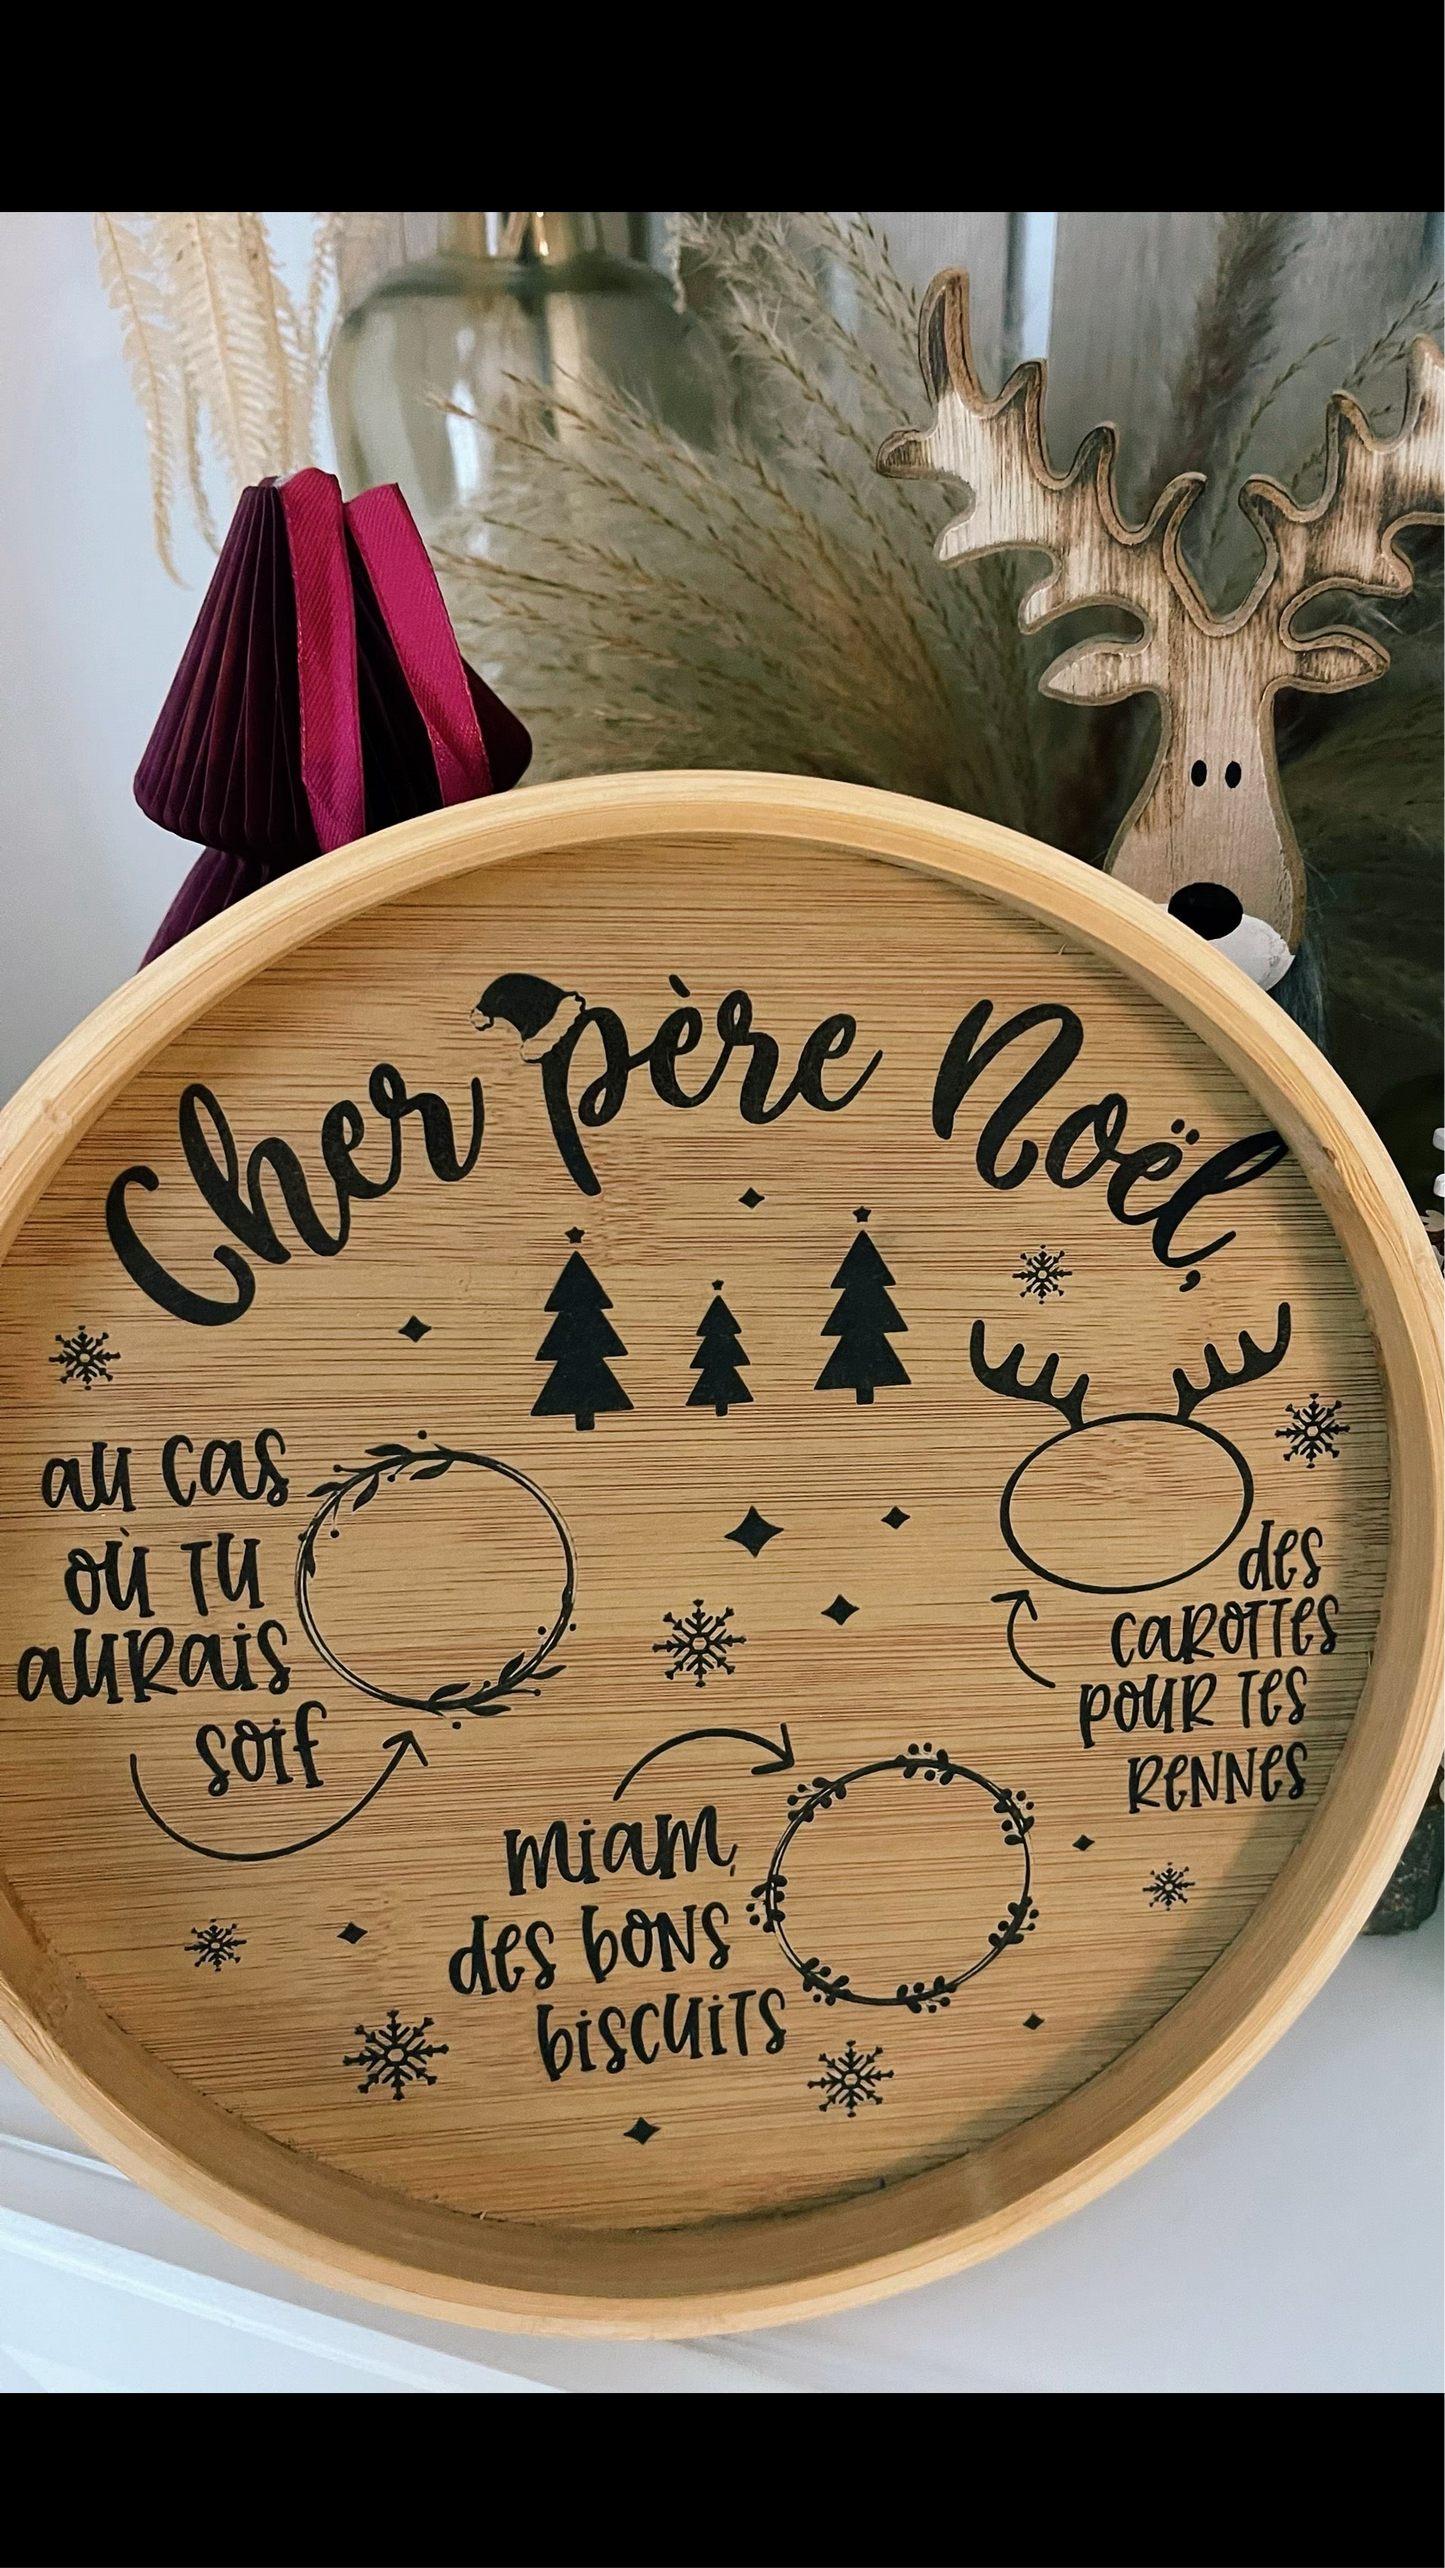 Cher père Noël,
au cas
où tu
aurais
soif
des
carottes
pour tes
rennes
miam,
des bons
biscuits